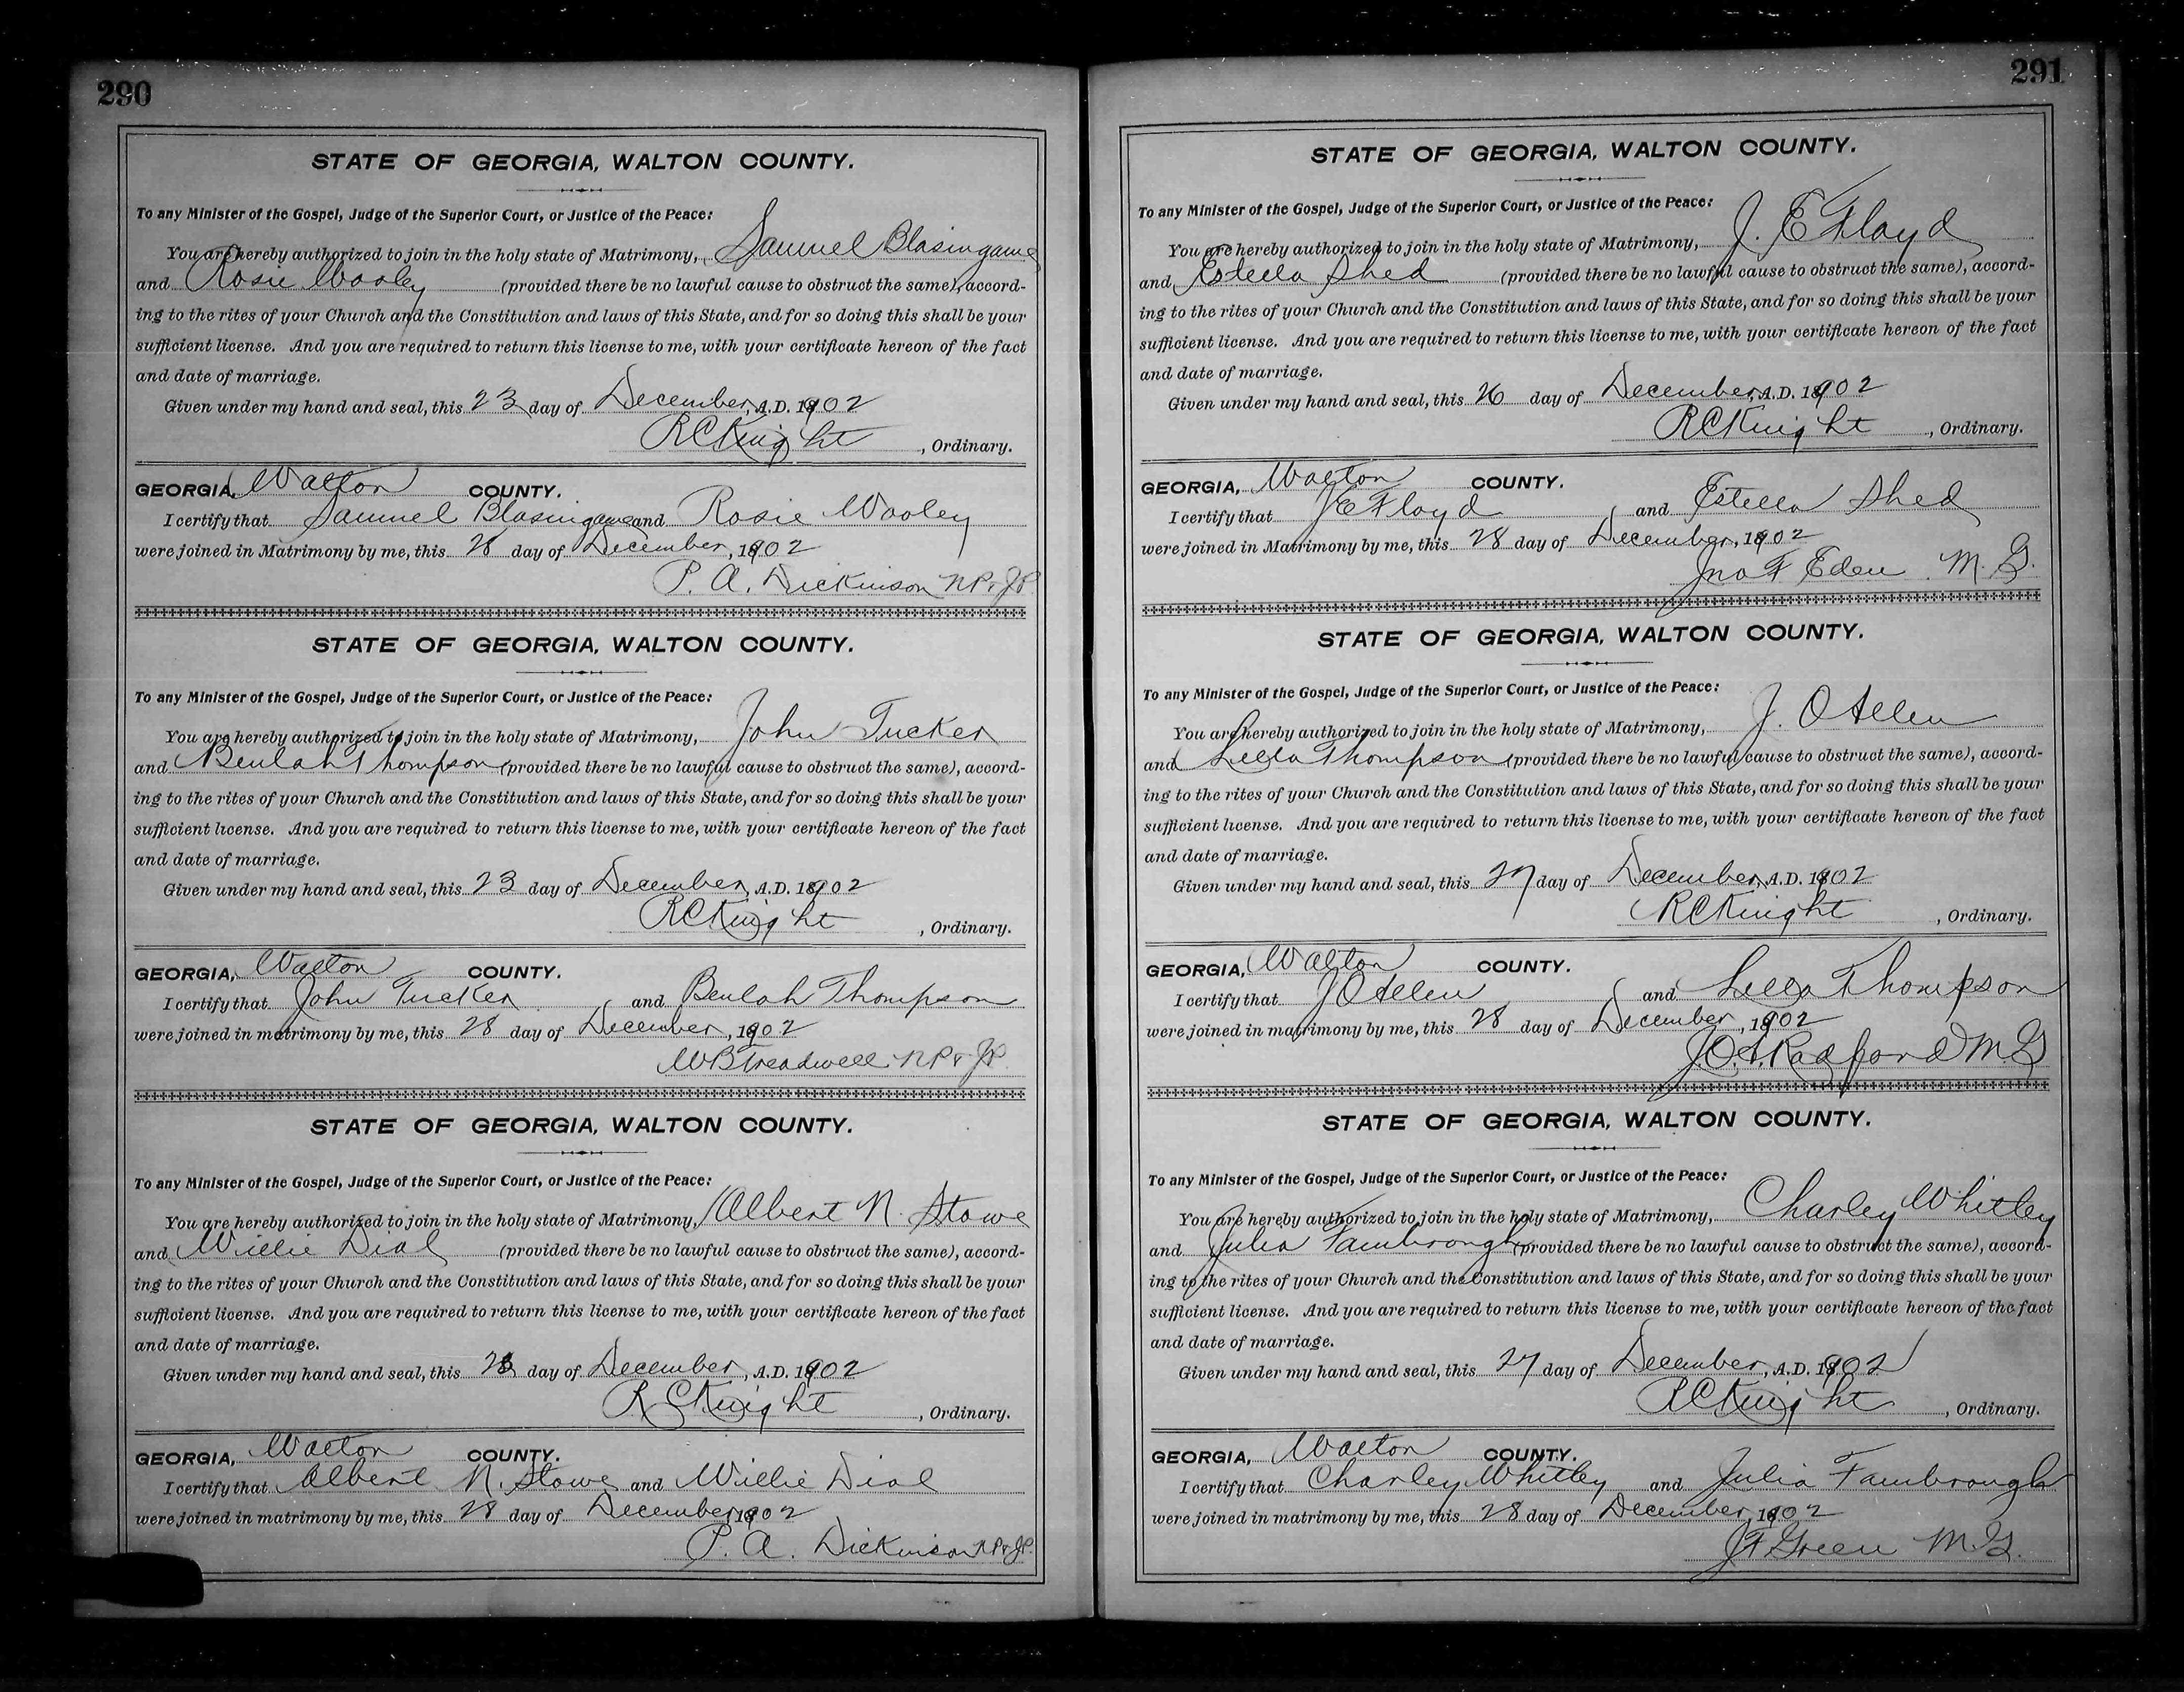 290
STATE OF GEORGIA, WALTON COUNTY.
To any Minister of the Gospel, Judge of the Superior Court, or Justice of the Peace:
You are hereby authorized to join in the holy state of Matrimony, Samuel Blasingame
and Rosie Wooley (provided there be no lawful cause to obstruct the same), accord-
ing to the rites of your Church and the Constitution and laws of this State, and for so doing this shall be your
sufficient license. And you are required to return this license to me, with your certificate hereon of the fact
and date of marriage.
Given under my hand and seal, this 23 day of December, A.D. 1902
R C Knight, Ordinary.
GEORGIA, Walton COUNTY.
I certify that Samuel Blasingame and Rosie Wooley
were joined in Matrimony by me, this 28 day of December, 1902
P. A. Dickinson NP & JP
STATE OF GEORGIA, WALTON COUNTY.
To any Minister of the Gospel, Judge of the Superior Court, or Justice of the Peace:
You are hereby authorized to join in the holy state of Matrimony, John Tucker
and Beulah Thompson (provided there be no lawful cause to obstruct the same), accord-
ing to the rites of your Church and the Constitution and laws of this State, and for so doing this shall be your
sufficient license. And you are required to return this license to me, with your certificate hereon of the fact
and date of marriage.
Given under my hand and seal, this 23 day of December, A.D. 1902
R C Knight, Ordinary.
GEORGIA, Walton COUNTY.
I certify that John Tucker and Beulah Thompson
were joined in matrimony by me, this 28 day of December, 1902
W B Treadwell NP & JP.
STATE OF GEORGIA, WALTON COUNTY.
To any Minister of the Gospel, Judge of the Superior Court, or Justice of the Peace:
You are hereby authorized to join in the holy state of Matrimony, Albert N. Stowe
and Willie Dial (provided there be no lawful cause to obstruct the same), accord-
ing to the rites of your Church and the Constitution and laws of this State, and for so doing this shall be your
sufficient license. And you are required to return this license to me, with your certificate hereon of the fact
and date of marriage.
Given under my hand and seal, this day of December, A.D. 1902
R C Knight, Ordinary.
GEORGIA, Walton COUNTY.
I certify that Albert N. Stowe and Willie Dial
were joined in matrimony by me, this 28 day of December, 1902
P. A. Dickinson NP & JP.
291
STATE OF GEORGIA, WALTON COUNTY.
To any Minister of the Gospel, Judge of the Superior Court, or Justice of the Peace:
You are hereby authorized to join in the holy state of Matrimony, J. E Floyd
and Estella Shed (provided there be no lawful cause to obstruct the same), accord-
ing to the rites of your Church and the Constitution and laws of this State, and for so doing this shall be your
sufficient license. And you are required to return this license to me, with your certificate hereon of the fact
and date of marriage.
Given under my hand and seal, this 26 day of December, A.D. 1902
R C Knight, Ordinary.
GEORGIA, Walton COUNTY.
I certify that J E Floyd and Estella Shed
were joined in Matrimony by me, this 28 day of December, 1902
Jno F Eden M. G.
STATE OF GEORGIA, WALTON COUNTY.
To any Minister of the Gospel, Judge of the Superior Court, or Justice of the Peace:
You are hereby authorized to join in the holy state of Matrimony, J. O Allen
and Lella Thompson (provided there be no lawful cause to obstruct the same), accord-
ing to the rites of your Church and the Constitution and laws of this State, and for so doing this shall be your
sufficient license. And you are required to return this license to me, with your certificate hereon of the fact
and date of marriage.
Given under my hand and seal, this 27 day of December, A.D. 1902
R C Knight, Ordinary.
GEORGIA, Walton COUNTY.
I certify that J O Allen and Lella Thompson
were joined in matrimony by me, this 28 day of December, 1902
J. O. A. Radford M G
STATE OF GEORGIA, WALTON COUNTY.
To any Minister of the Gospel, Judge of the Superior Court, or Justice of the Peace:
You are hereby authorized to join in the holy state of Matrimony, Charley Whitley
and Julia Fambrough (provided there be no lawful cause to obstruct the same), accord-
ing to the rites of your Church and the Constitution and laws of this State, and for so doing this shall be your
sufficient license. And you are required to return this license to me, with your certificate hereon of the fact
and date of marriage.
Given under my hand and seal, this 27 day of December, A.D. 1902
R C Knight, Ordinary.
GEORGIA, Walton COUNTY.
I certify that Charley Whitley and Julia Fambrough
were joined in matrimony by me, this 28 day of December, 1902
J F Green M. G.